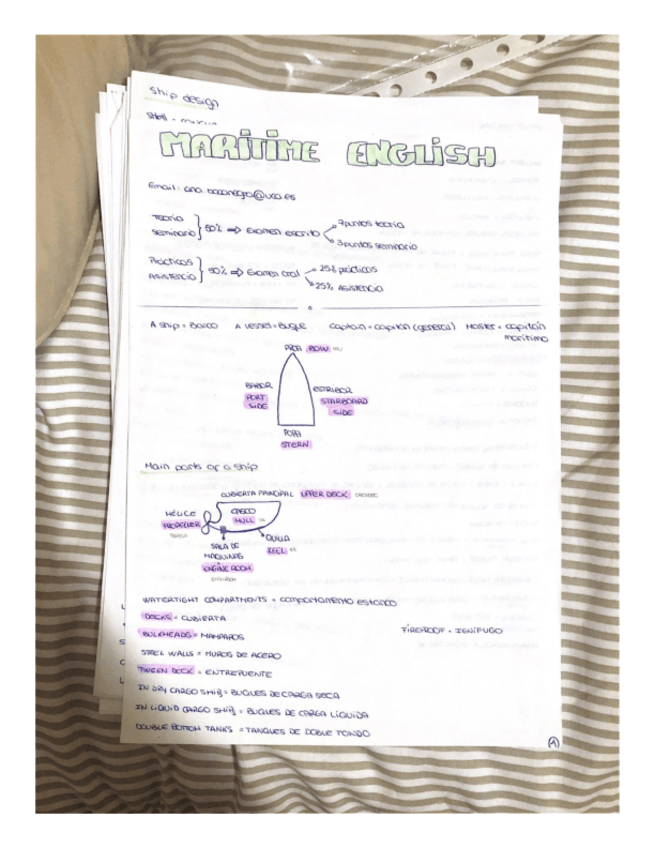 Ship design
MARITIME ENGLISH
Email: ana.bocanegra@uca.es
Teoría
Seminario } 50% ⇒ Examen escrito
7 puntos teoría
3 puntos seminario
Prácticas
Asistencia } 50% ⇒ Examen oral
25% prácticas
25% Asistencia
A ship = Barco A vessel = Buque Captain = capitán (general) Master = capitán
marítimo
PROA BOW
BABOR
PORT
SIDE
ESTRIBOR
STARBOARD
SIDE
POPA
STERN
Main parts of a ship
CUBIERTA PRINCIPAL UPPER DECK
HÉLICE
PROPELLER
CASCO
HULL
QUILLA
KEEL
SALA DE
MAQUINAS
ENGINE ROOM
WATERTIGHT COMPARTMENTS = compartimento estanco
DECKS = CUBIERTA
FIREPROOF = IGNÍFUGO
BULKHEADS = MAMPAROS
STEEL WALLS = MUROS DE ACERO
TWEEN DECK = ENTREPUENTE
IN DRY CARGO SHIPS = BUQUES DE CARGA SECA
IN LIQUID CARGO SHIPS = BUQUES DE CARGA LÍQUIDA
DOUBLE BOTTOM TANKS = TANQUES DE DOBLE FONDO
1